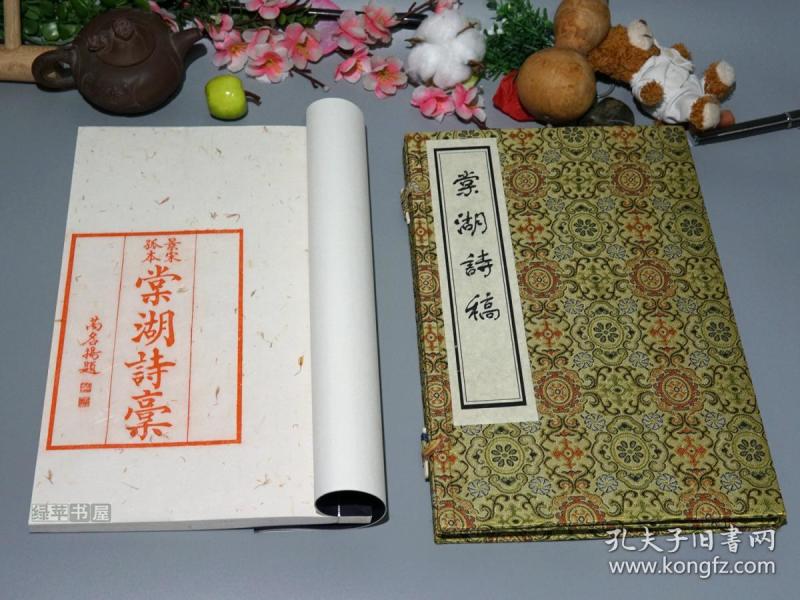 景宋
孤本
棠湖詩稾
尚名揚題
棠湖詩稿
绿苹书屋
孔夫子旧书网
www.kongfz.com